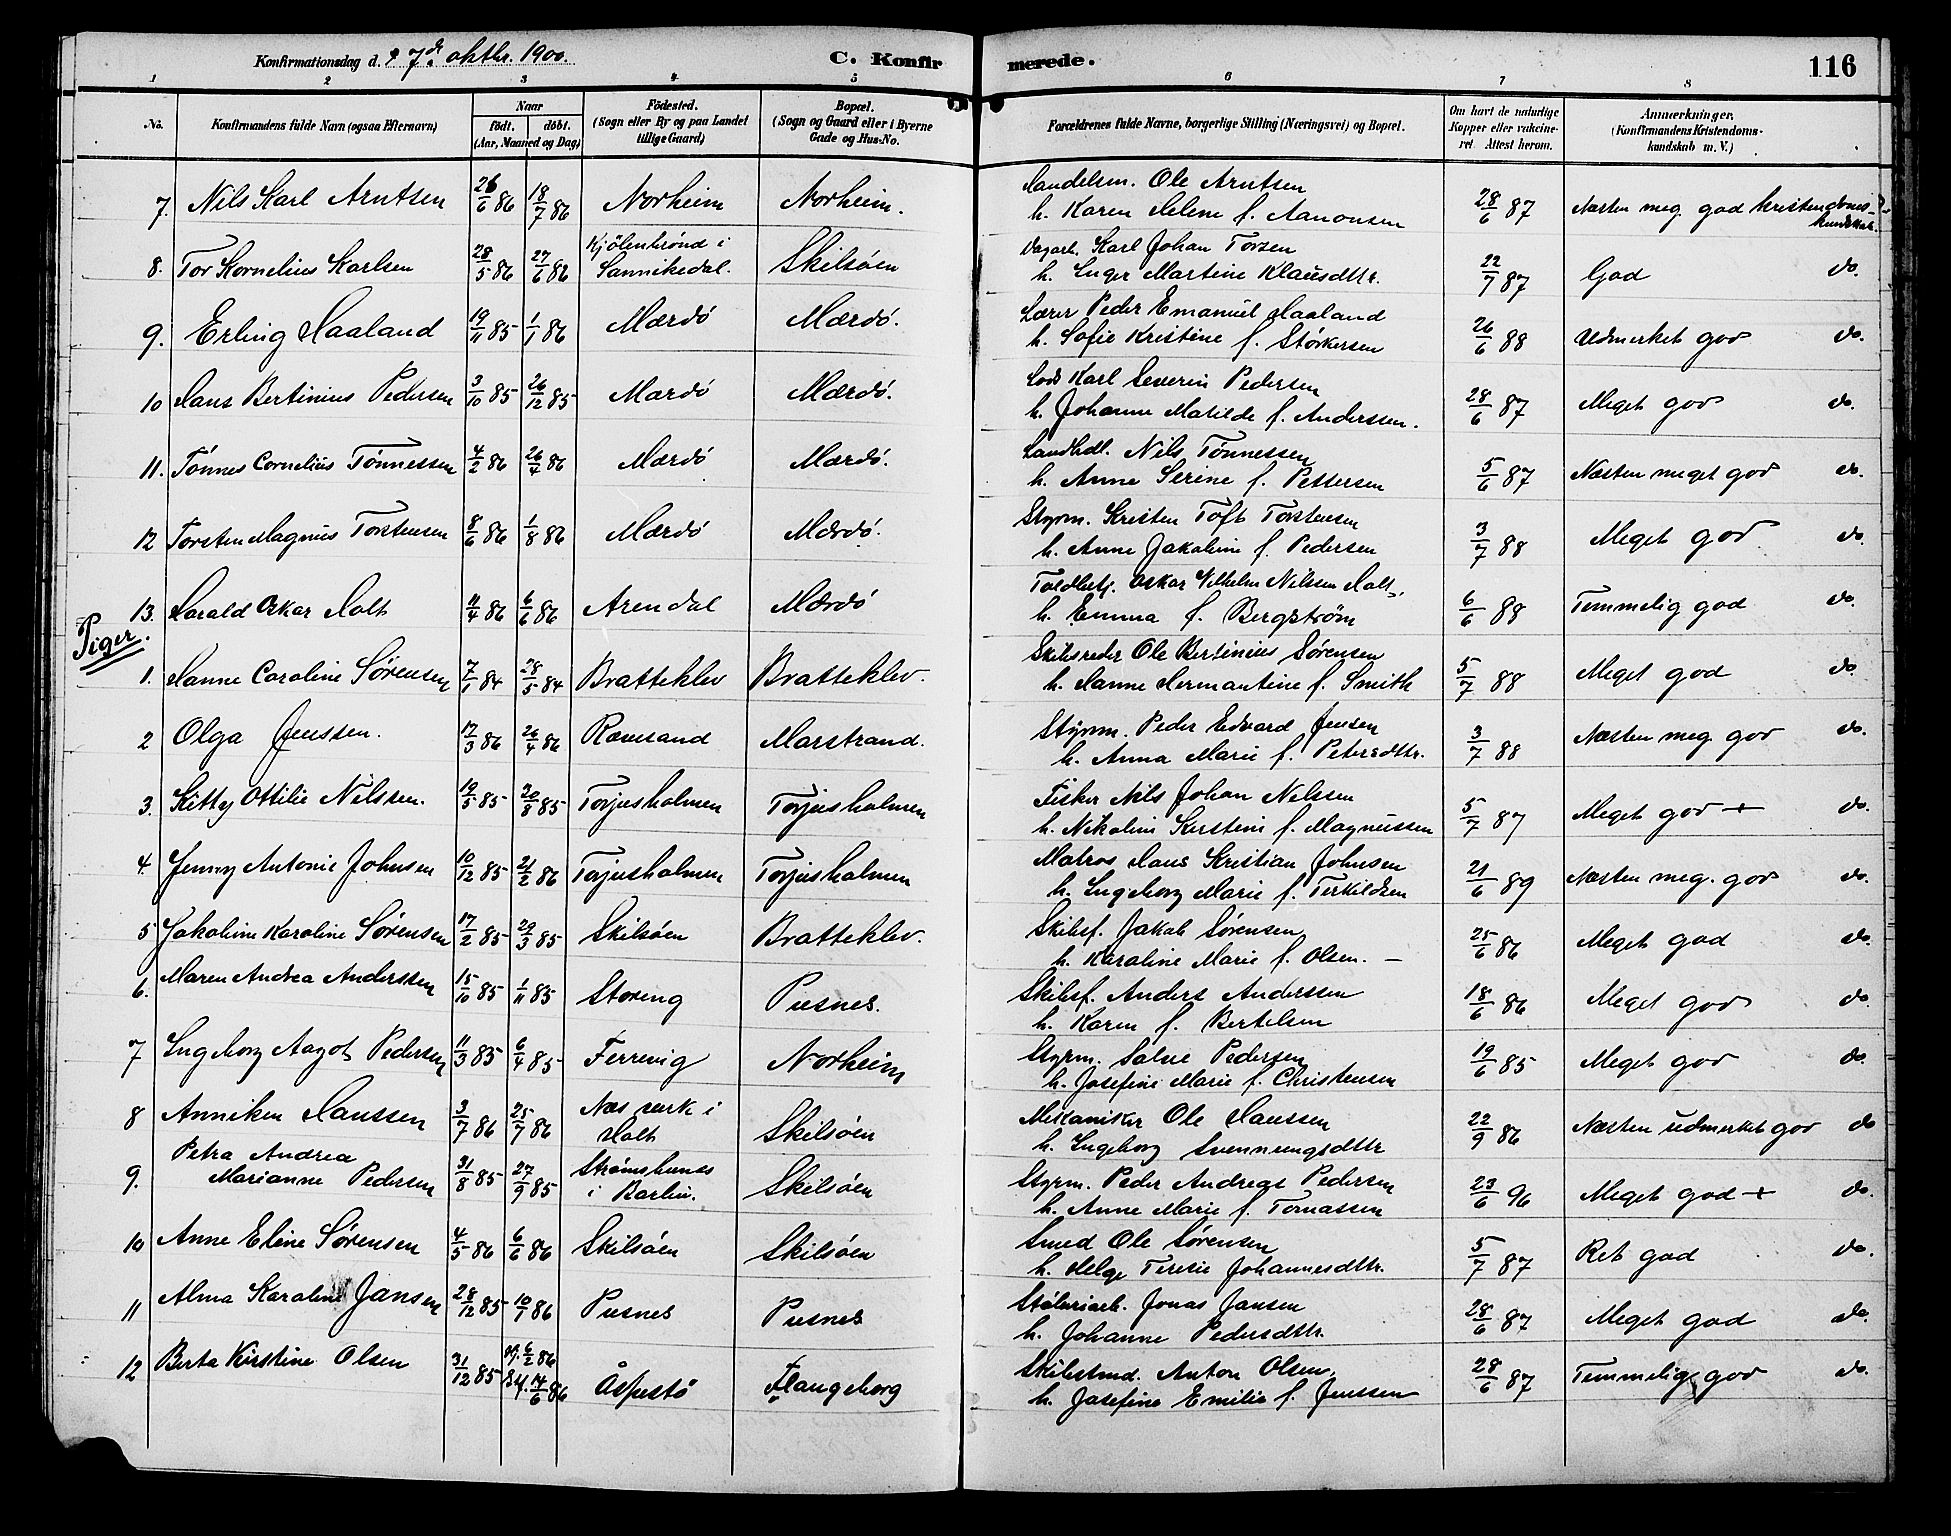 Konfirmationsdag d. 7de oktbr. 1900.
C. Konfirmerede.
116
1 2 3 4 5 6 7 8
No.
Konfirmandens fulde Navn (ogsaa Efternavn)
Naar
født. døbt.
(Aar, Maaned og Dag)
Fødested.
(Sogn eller By og paa Landet
tillige Gaard)
Bopæl.
(Sogn og Gaard eller i Byerne
Gade og Hus-No.
Forældrenes fulde Navne, borgerlige Stilling (Næringsvei) og Bopæl.
Om havt de naturlige
Kopper eller vakcine-
ret. Attest herom.
Anmerkninger.
(Konfirmandens Kristendoms-
kundskab m. V.)
7. Nils Karl Arntsen 26/6 86 18/7 86 Norheim Norheim. Handelsm. Ole Arntsen
h. Karen Helene f. Aanonsen 28/6 87 Næsten meg. god kristendoms-
kundskab.
8. Tor Kornelius Karlsen 28/5 86 27/6 86 Kjölenbrønd i
Sannikedal. Skilsøen Dagarb. Karl Johan Torsen
h. Inger Martine Klausdttr. 22/7 87 God do.
9. Erling Haaland 19/11 85 1/1 86 Mærdö Mærdö. Lærer Peder Emanuel Haaland
h. Sofie Kristine f. Størkersen 26/6 88 Udmerket god do.
10 Hans Bertinius Pedersen 3/10 85 26/12 85 Mærdö Mærdö. Lods Karl Severin Pedersen
h. Johanne Matilde f. Anderssen. 28/6 87 Meget god do.
11. Tönnes Cornelius Tönnessen 4/2 86 26/4 86 Mærdö Mærdö. Landhdl. Nils Tønnessen
h. Anne Serine f. Pettersen 5/6 87 Næsten meget god do.
12 Torsten Magnus Torstensen 8/6 86 1/8 86 Mærdö Mærdö. Styrm. Kristen Toft Torstensen
h. Anne Jakobine f. Pedersen 3/7 88 Meget god do.
13. Harald Oskar Holt 11/4 86 6/6 86 Arendal Mærdö Toldbetj. Oskar Vilhelm Nilssen Holt,
h. Emma f. Bergstrøm 6/6 88 Temmelig god do.
Piger.
1. Hanne Caroline Sørensen 7/1 84 28/5 84 Bratteklev Bratteklev. Skibsreder Ole Bertinius Sørensen
h. Hanne Hermantine f. Smith 5/7 88 Meget god do.
2 Olga Jenssen. 17/3 86 26/4 86 Rævesand Marstrand. Styrm. Peder Edvard Jensen
h. Anna Marie f. Petersdttr. 3/7 88 Næsten meg. god do.
3. Kitty Ottilie Nilssen. 19/5 85 20/8 85 Torjusholmen Torjusholmen Fisker Nils Johan Nilssen
h. Nikoline Kirstine f. Magnussen 5/7 87 Meget god + do.
4. Jenny Antonie Johnsen 10/12 85 21/2 86 Torjusholmen Torjusholmen Matros Hans Kristian Johnsen
h. Ingeborg Marie f. Terkildsen 21/6 89 Næsten meg. god do.
5 Jakobine Karoline Sørensen 17/2 85 29/3 85 Skilsöen Bratteklev. Skibsf. Jakob Sørensen
h. Karoline Marie f. Olsen. 25/6 86 Meget god do.
6. Maren Andrea Anderssen 15/10 85 1/11 85 Storeng Pusnes. Skibsf. Anders Anderssen
h. Karen f. Bertelsen 18/6 86 Meget god do.
7 Ingeborg Aagot Pedersen 11/3 85 6/4 85 Ferrevig Norheim Styrm. Salve Pedersen
h. Josefine Marie f. Christensen 19/6 85 Meget god do.
8 Anniken Hanssen 3/7 86 25/7 86 Næs verk i
Holt Skilsöen Mekaniker Ole Hanssen
h. Ingeborg Svennungsdttr 22/9 86 Næsten udmerket god do
9. Petra Andrea
Marianne Pedersen 31/8 85 27/9 85 Strømsbunes
i Barbu. Skilsöen Styrm. Peder Andreas Pedersen
h. Anne Marie f. Tomassen 23/6 96 Meget god + do.
10 Anne Eline Sørensen 4/5 86 6/6 86 Skilsöen Skilsöen Smed Ole Sørensen
h. Helge Terese Johannesdttr. 5/7 87 Ret god do.
11 Alma Karoline Jansen 28/12 85 10/1 86 Pusnes Pusnes Støberiarb. Jonas Jansen
h. Johanne Pedersdttr. 28/6 87 Meget god do.
12 Berta Kirstine Olsen 31/12 85 6/2 86
14/6 86 Åspestö Flangeborg Skibstmd. Anton Olsen
h. Josefine Emilie f. Jenssen 28/6 87 Temmelig god do.